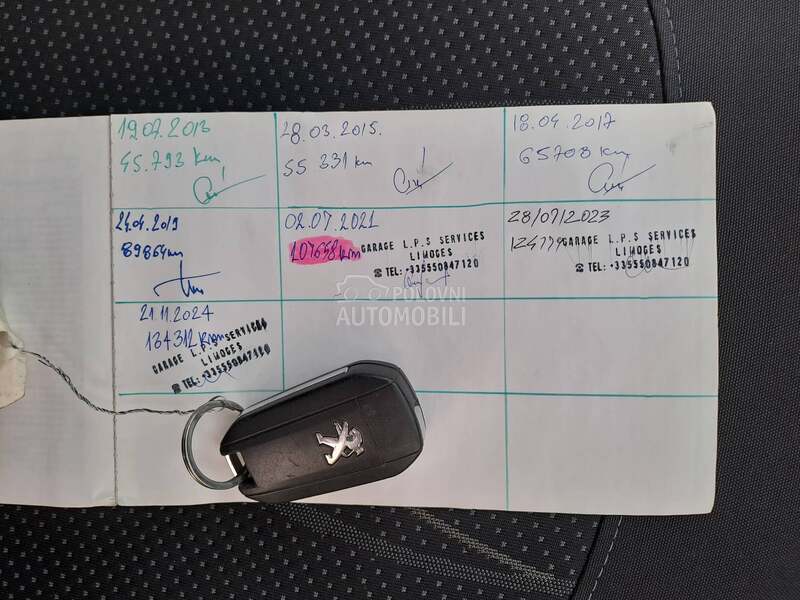 19.07.2013
45.793 km
28.03.2015.
55 331 km
18.04.2017
65708 km
24.04.2019
89864 km
02.07.2021
107658 km
GARAGE L.P.S SERVICES
LIMOGES
☎ TEL: +335550847120
28/07/2023
GARAGE L.P.S SERVICES
LIMOGES
☎ TEL: +335550847120
21.11.2024
134312 km
GARAGE L.P.S SERVICES
LIMOGES
☎ TEL: +335550847120
POLOVNI
AUTOMOBILI